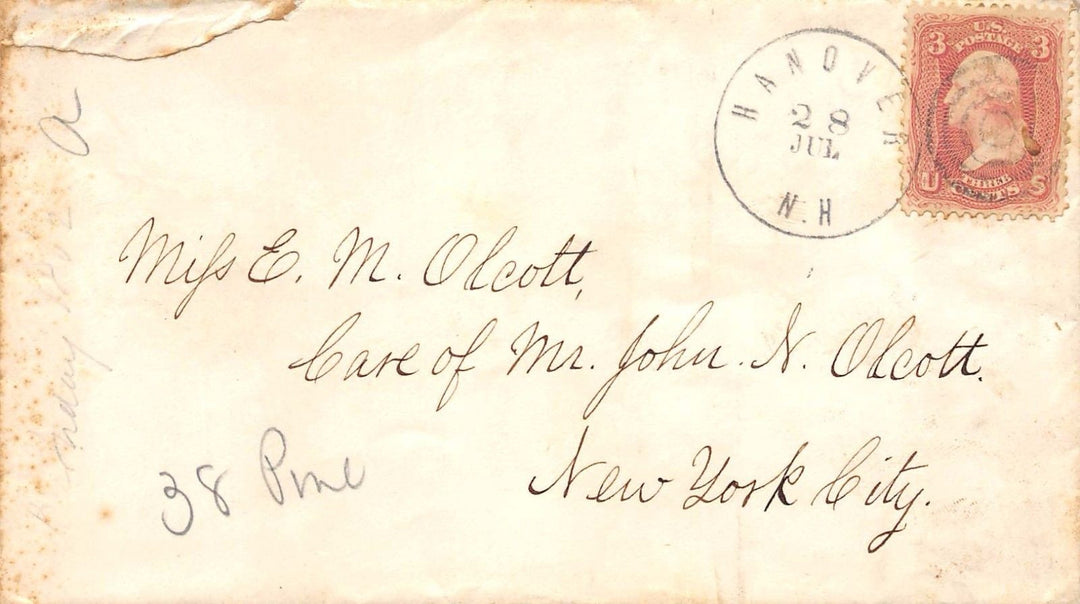 HANOVER
28
JUL
N.H
3 U.S. 3
POSTAGE
U S
Miss E. M. Olcott,
Care of Mr. John. N. Olcott.
New York City.
38 Pine
a